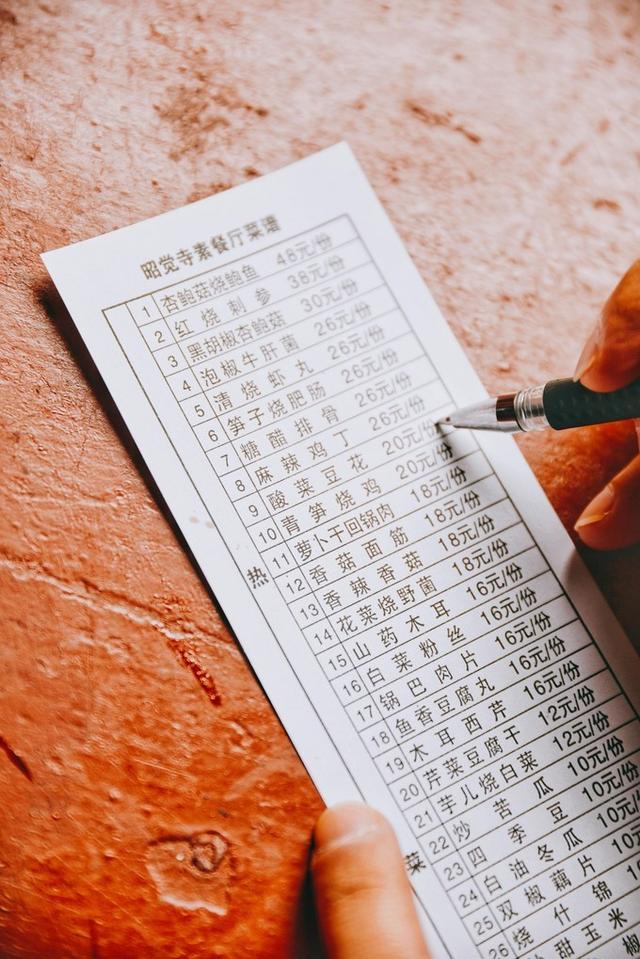 昭觉寺素餐厅菜谱
1 杏鲍菇烧鲍鱼 48元/份
2 红烧刺参 38元/份
3 黑胡椒杏鲍菇 30元/份
4 泡椒牛肝菌 26元/份
5 清烧虾丸 26元/份
6 笋子烧肥肠 26元/份
7 糖醋排骨 26元/份
8 麻辣鸡丁 26元/份
9 酸菜豆花 20元/份
10 青笋烧鸡 20元/份
11 萝卜干回锅肉 18元/份
12 香菇面筋 18元/份
13 香辣香菇 18元/份
14 花菜烧野菌 18元/份
15 山药木耳 16元/份
16 白菜粉丝 16元/份
17 锅巴肉片 16元/份
18 鱼香豆腐丸 16元/份
19 木耳西芹 16元/份
20 芹菜豆腐干 12元/份
21 芋儿烧白菜 12元/份
22 炒苦瓜 10元/份
23 四季豆 10元/份
24 白油冬瓜 10元
25 双椒藕片 10元
26 烧什锦
甜玉米
热
菜